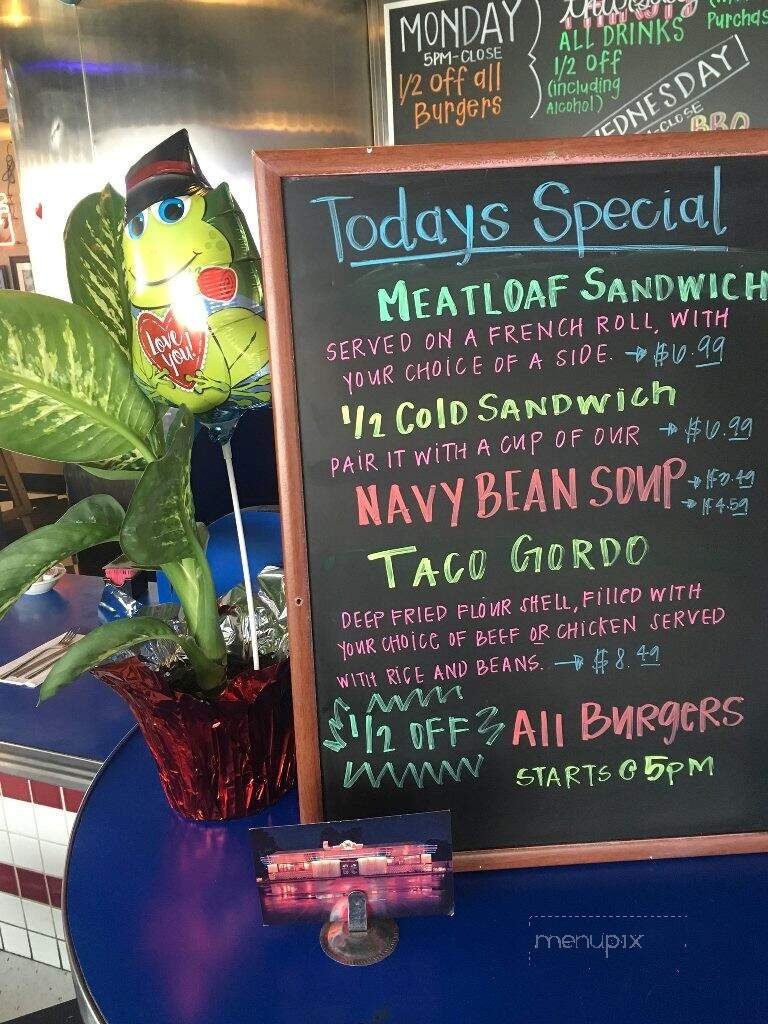 MONDAY
5PM-CLOSE
1/2 off all
Burgers
Thursday
ALL DRINKS
1/2 off
(including
Alcohol)
Purchas
WEDNESDAY
BBQ
Love
You!
Todays Special
MEATLOAF SANDWICH
SERVED ON A FRENCH ROLL, WITH
YOUR CHOICE OF A SIDE. → $6.99
1/2 COLD SANDWICH
PAIR IT WITH A CUP OF OUR → $6.99
NAVY BEAN SOUP → $3.49
→ $4.59
TACO GORDO
DEEP FRIED FLOUR SHELL, FILLED WITH
YOUR CHOICE OF BEEF OR CHICKEN SERVED
WITH RICE AND BEANS. → $8.49
1/2 OFF All BURGERS
STARTS @ 5PM
menupix